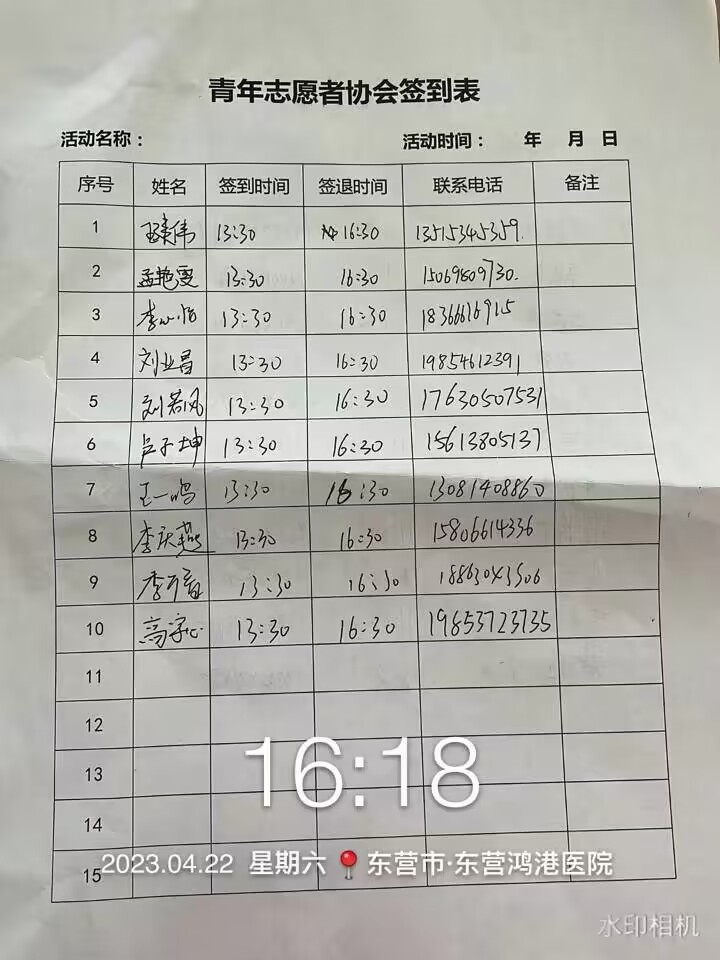 青年志愿者协会签到表
活动名称： 活动时间： 年 月 日
序号 姓名 签到时间 签退时间 联系电话 备注
1 13:30 16:30 13515345359.
2 孟艳雯 13:30 16:30 15069809730.
3 李心怡 13:30 16:30 18366616915
4 刘业昌 13:30 16:30 19854612391
5 刘若风 13:30 16:30 17630507531
6 卢子坤 13:30 16:30 15613805137
7 王一鸣 13:30 16:30 13081408860
8 李庆燕 13:30 16:30 15806614336
9 李 13:30 16:30 18863043506
10 高 13:30 16:30 19853723735
11
12
13
16:18
14
15
2023.04.22 星期六 东营市·东营鸿港医院
水印相机